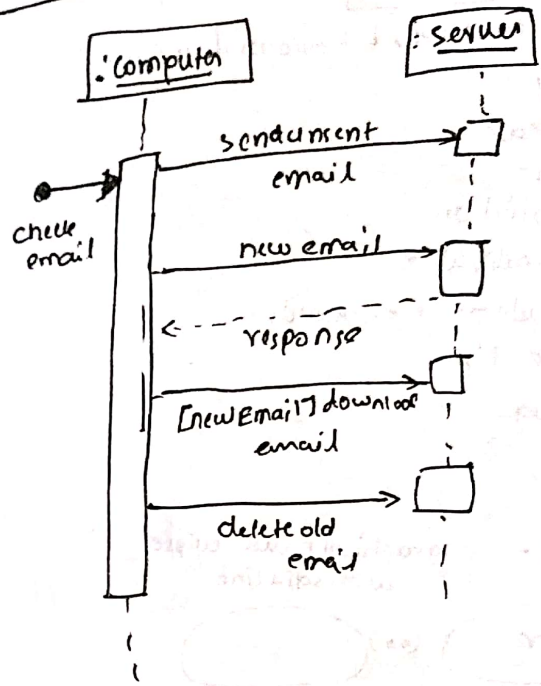 :computer
:server
sendunsent
email
check
email
new email
response
[newEmail] download
email
delete old
email